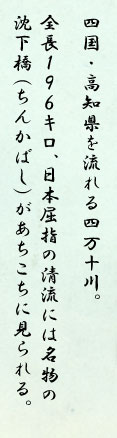 四国・高知県を流れる四万十川。
全長196キロ、日本屈指の清流には名物の
沈下橋(ちんかばし)があちこちに見られる。